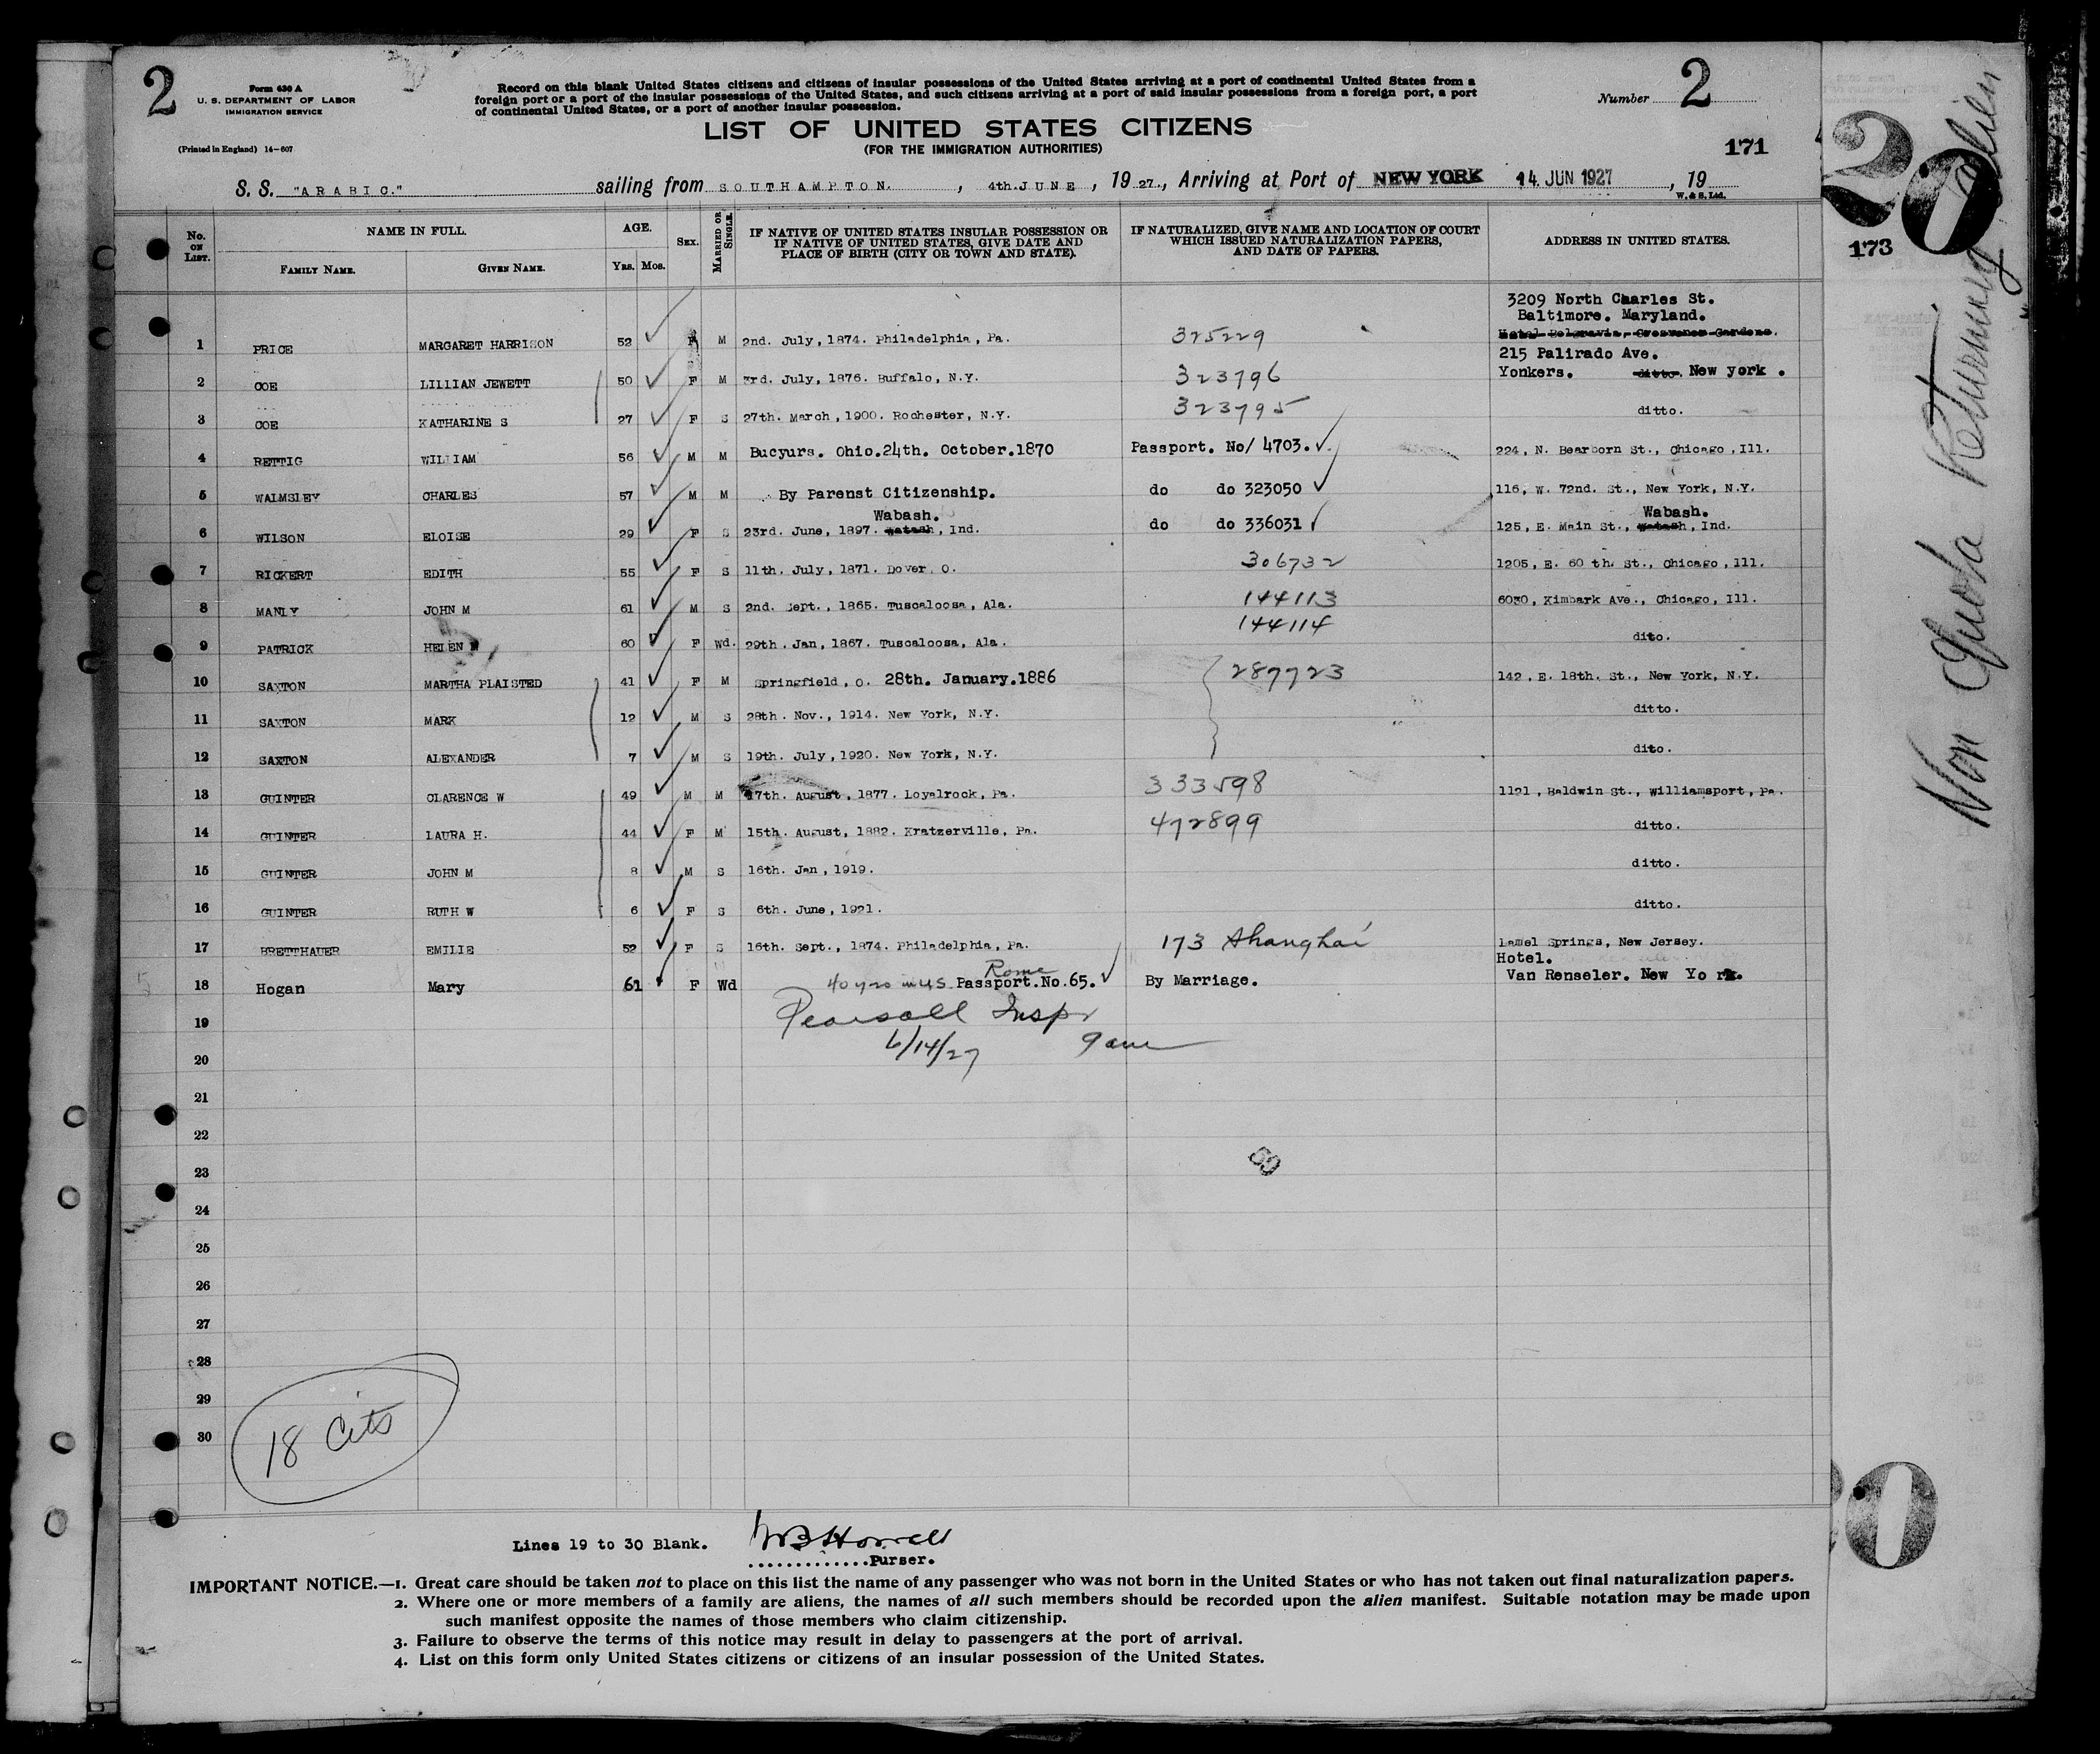 2
Form 630 A
U. S. DEPARTMENT OF LABOR
IMMIGRATION SERVICE
(Printed in England) 14-607
Record on this blank United States citizens and citizens of insular possessions of the United States arriving at a port of continental United States from a
foreign port or a port of the insular possessions of the United States, and such citizens arriving at a port of said insular possessions from a foreign port, a port
of continental United States, or a port of another insular possession.
LIST OF UNITED STATES CITIZENS
(FOR THE IMMIGRATION AUTHORITIES)
Number 2
171
S. S. "ARABIC." sailing from SOUTHAMPTON. , 4th.JUNE , 1927., Arriving at Port of NEW YORK 14 JUN 1927 , 19
W. & S. Ltd.
No. ON LIST.
NAME IN FULL.
FAMILY NAME.
GIVEN NAME.
AGE.
YRS. MOS.
SEX.
MARRIED OR SINGLE.
IF NATIVE OF UNITED STATES INSULAR POSSESSION OR
IF NATIVE OF UNITED STATES, GIVE DATE AND
PLACE OF BIRTH (CITY OR TOWN AND STATE).
IF NATURALIZED, GIVE NAME AND LOCATION OF COURT
WHICH ISSUED NATURALIZATION PAPERS,
AND DATE OF PAPERS.
ADDRESS IN UNITED STATES.
3209 North Charles St.
Baltimore. Maryland.
Hotel Belgravia, Grosvenor Gardens.
1 PRICE MARGARET HARRISON 52 F M 2nd. July, 1874. Philadelphia, Pa. 325229
215 Palirado Ave.
2 COE LILLIAN JEWETT 50 F M 3rd. July, 1876. Buffalo, N.Y. 323796 Yonkers. ditto. New york .
3 COE KATHARINE S 27 F S 27th. March, 1900. Rochester, N.Y. 323795 ditto.
4 RETTIG WILLIAM 56 M M Bucyurs. Ohio.24th. October.1870 Passport. No/ 4703. 224, N. Bearborn St., Chicago, Ill.
5 WALMSLEY CHARLES 57 M M By Parenst Citizenship. do do 323050 116, W. 72nd. St., New York, N.Y.
Wabash. Wabash.
6 WILSON ELOISE 29 F S 23rd. June, 1897. Watash, Ind. do do 336031 125, E. Main St., Watash, Ind.
7 RICKERT EDITH 55 F S 11th. July, 1871. Dover, O. 306732 1205, E. 60 th. St., Chicago, Ill.
8 MANLY JOHN M 61 M S 2nd. Sept., 1865. Tuscaloosa, Ala. 144113 6030, Kimbark Ave., Chicago, Ill.
9 PATRICK HELEN 60 F Wd. 29th. Jan, 1867. Tuscaloosa, Ala. 144114 dito.
10 SAXTON MARTHA PLAISTED 41 F M Springfield, O. 28th. January.1886 287723 142, E. 18th. St., New York, N.Y.
11 SAXTON MARK 12 M S 28th. Nov., 1914. New York, N.Y. ditto.
12 SAXTON ALEXANDER 7 M S 19th. July, 1920. New York, N.Y. dito.
13 GUINTER CLARENCE W 49 M M 17th. August, 1877. Loyalrock, Pa. 333598 1121, Baldwin St., Williamsport, Pa.
14 GUINTER LAURA H. 44 F M 15th. August, 1882. Kratzerville, Pa. 472899 ditto.
15 GUINTER JOHN M 8 M S 16th. Jan, 1919. ditto.
16 GUINTER RUTH W 6 F S 6th. June, 1921. ditto.
17 BRETTHAUER EMILIE 52 F S 16th. Sept., 1874. Philadelphia, Pa. 173 Shanghai Lamel Springs, New Jersey.
Hotel.
Rome
18 Hogan Mary 61 F Wd 40 yrs in U.S. Passport.No.65. By Marriage. Van Renseler. New York.
19
Pearsall Inspr
20
6/14/27 9 am
21
22
23
24
25
26
27
28
29
30
18 Cits
Lines 19 to 30 Blank.
WB Horrell
.............Purser.
IMPORTANT NOTICE.—1. Great care should be taken not to place on this list the name of any passenger who was not born in the United States or who has not taken out final naturalization papers.
2. Where one or more members of a family are aliens, the names of all such members should be recorded upon the alien manifest. Suitable notation may be made upon
such manifest opposite the names of those members who claim citizenship.
3. Failure to observe the terms of this notice may result in delay to passengers at the port of arrival.
4. List on this form only United States citizens or citizens of an insular possession of the United States.
20
173
Non Quota Returning Alien